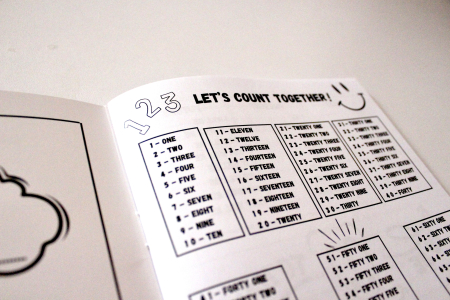 1 2 3
LET'S COUNT TOGETHER!
1 - ONE
2 - TWO
3 - THREE
4 - FOUR
5 - FIVE
6 - SIX
7 - SEVEN
8 - EIGHT
9 - NINE
10 - TEN
11 - ELEVEN
12 - TWELVE
13 - THIRTEEN
14 - FOURTEEN
15 - FIFTEEN
16 - SIXTEEN
17 - SEVENTEEN
18 - EIGHTEEN
19 - NINETEEN
20 - TWENTY
21 - TWENTY ONE
22 - TWENTY TWO
23 - TWENTY THREE
24 - TWENTY FOUR
25 - TWENTY FIVE
26 - TWENTY SIX
27 - TWENTY SEVEN
28 - TWENTY EIGHT
29 - TWENTY NINE
30 - THIRTY
31 - THIRTY ONE
32 - THIRTY TWO
33 - THIRTY THREE
34 - THIRTY FOUR
35 - THIRTY FIVE
36 - THIRTY SIX
37 - THIRTY SEVEN
38 - THIRTY EIGHT
39 - THIRTY NINE
40 - FORTY
41 - FORTY ONE
51 - FIFTY ONE
52 - FIFTY TWO
53 - FIFTY THREE
54 - FIFTY FOUR
61 - SIXTY
62 - SIXTY
63 - SIXTY